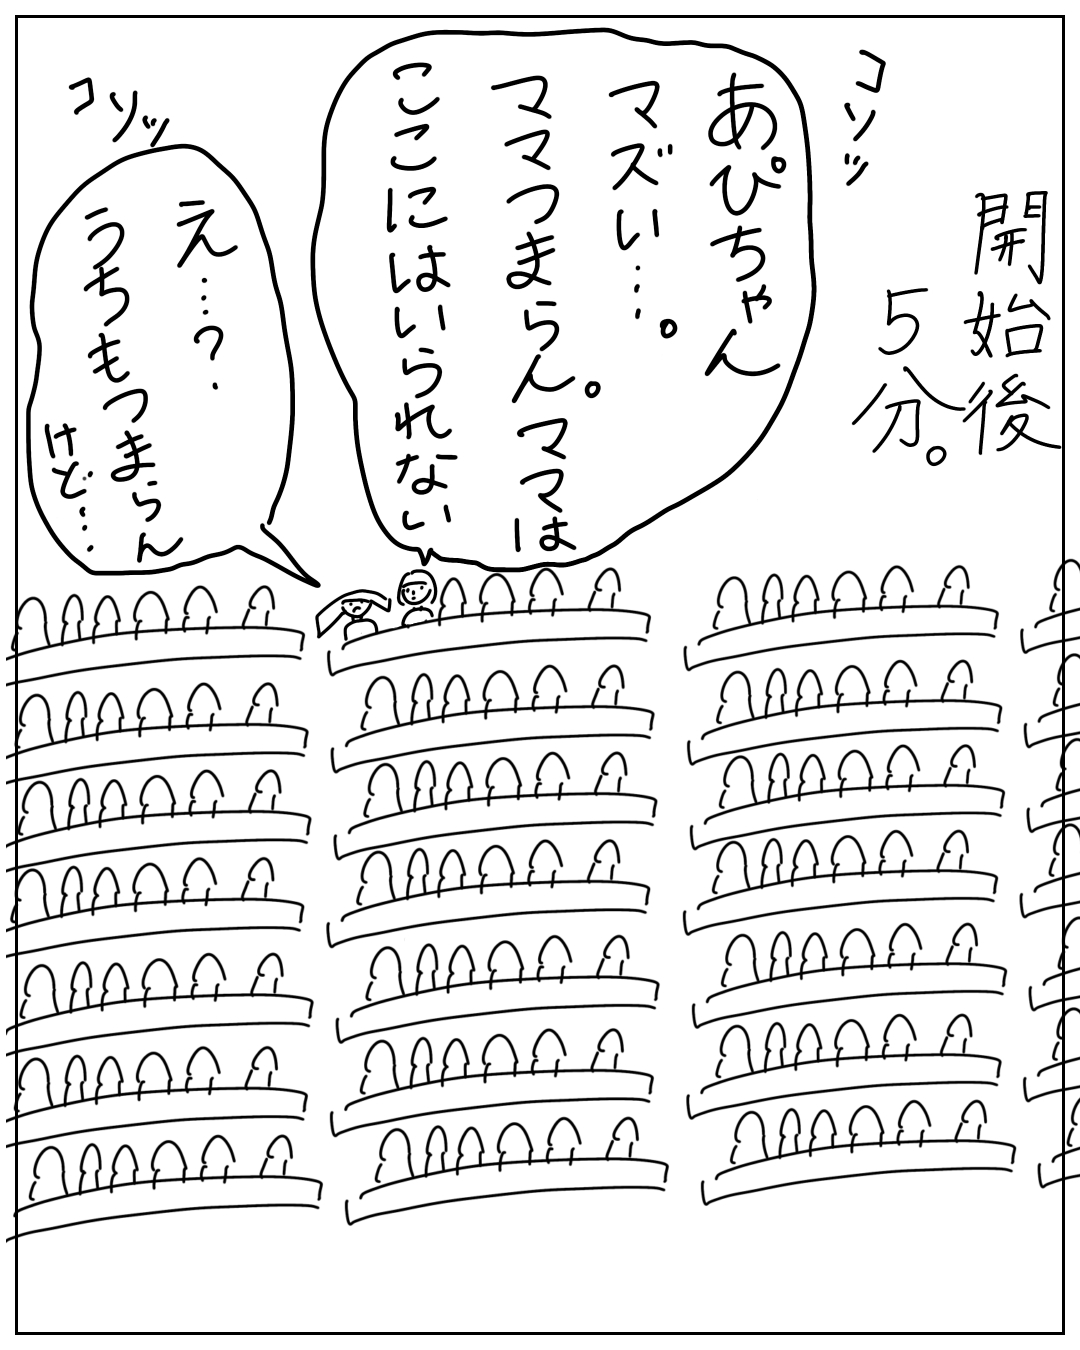 開始後
5分。
コソッ
あぴちゃん
マズい…。
ママつまらん。ママは
ここにはいられない
コソッ
え…?
うちもつまらん
けど…